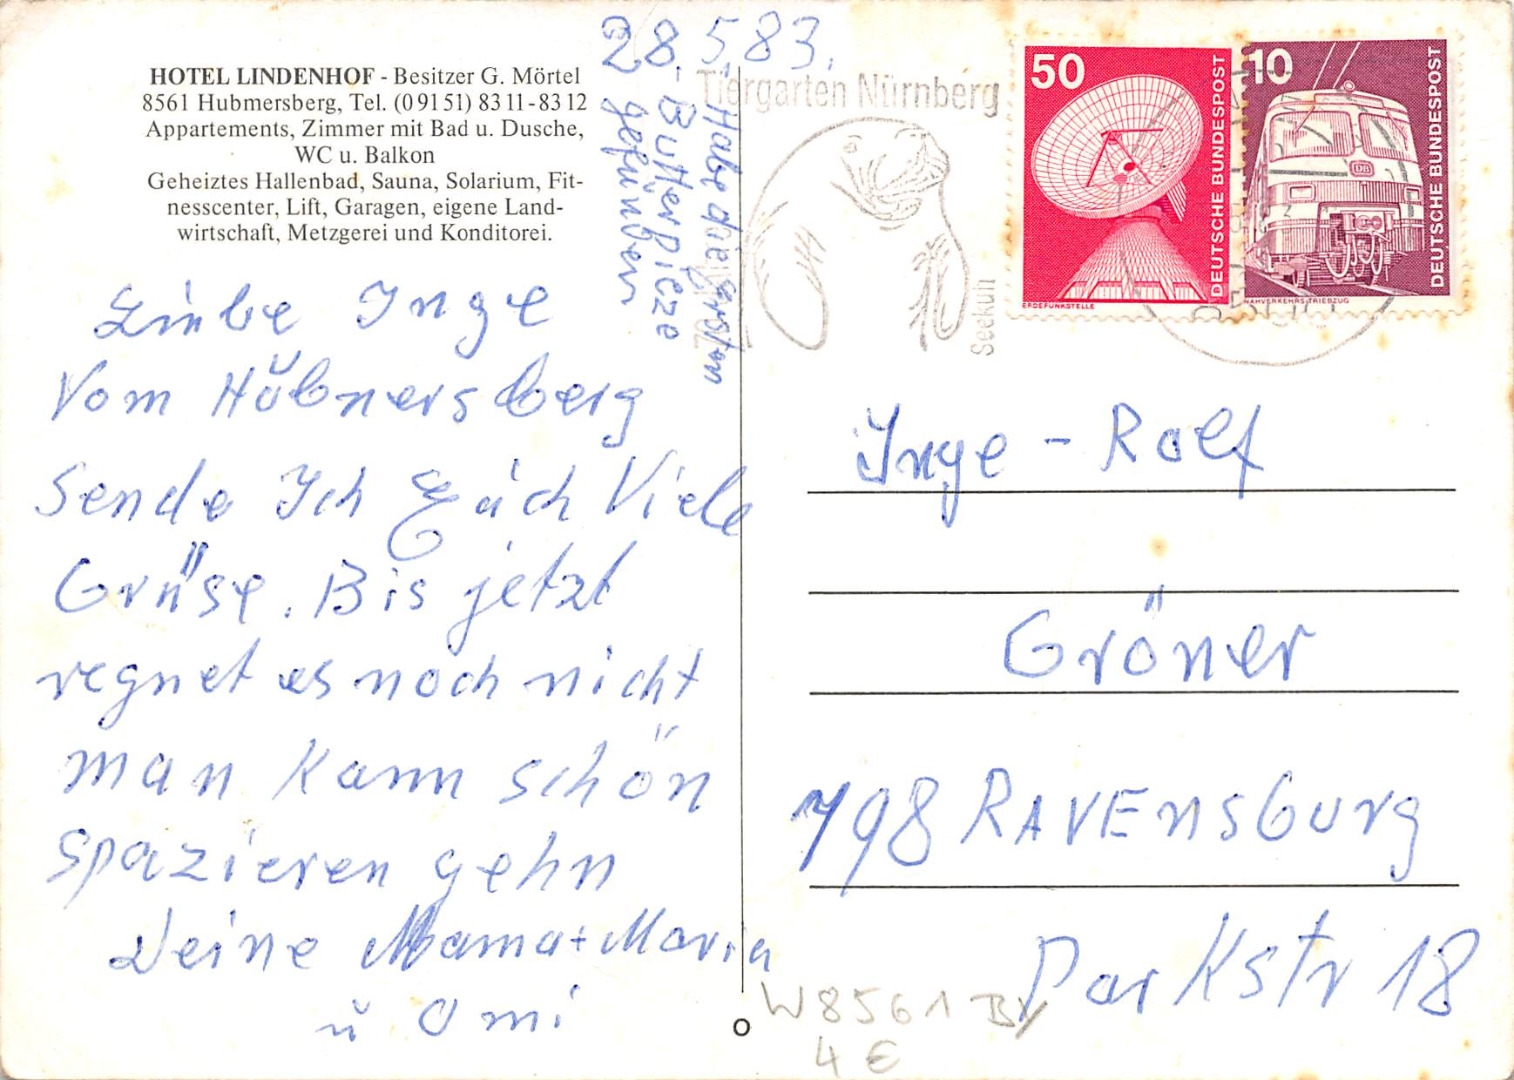 HOTEL LINDENHOF - Besitzer G. Mörtel
8561 Hubmersberg, Tel. (0 91 51) 83 11 - 83 12
Appartements, Zimmer mit Bad u. Dusche,
WC u. Balkon
Geheiztes Hallenbad, Sauna, Solarium, Fit-
nesscenter, Lift, Garagen, eigene Land-
wirtschaft, Metzgerei und Konditorei.
28.5.83.
Habe die großen
Butterpieze
gefunden
Liebe Inge
Vom Hübnersberg
Sende Ich Euch Viele
Grüse. Bis jetzt
regnet es noch nicht
man kann schön
spazieren gehn
Deine Mama + Maria
u Omi
Tiergarten Nürnberg
Seekuh
50
DEUTSCHE BUNDESPOST
ERDEFUNKSTELLE
10
DB
DEUTSCHE BUNDESPOST
NAHVERKEHRS-TRIEBZUG
Inge - Rolf
Gröner
798 RAVENSburg
Parkstr 18
W 8561 By
4 €